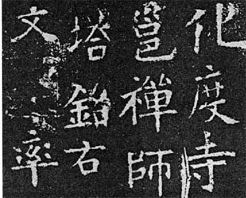 化度寺
邕禪師
塔銘右
文率